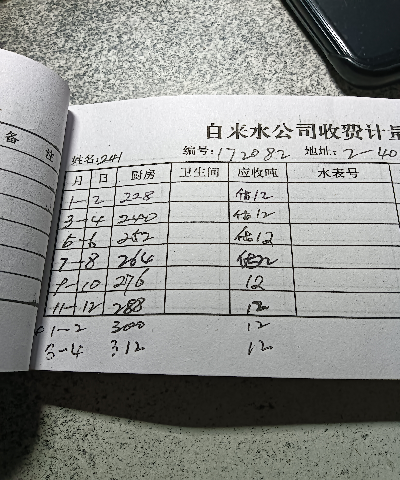 自来水公司收费计量
备注
姓名: 编号:172082 地址:2-40
月 日 厨房 卫生间 应收吨 水表号
1-2 228 估12
3-4 240 估12
5-6 252 估12
7-8 264
9-10 276 12
11-12 288 12
1-2 300 12
3-4 312 12